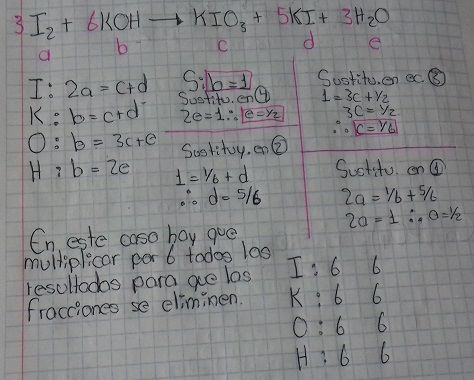 3 I₂ + 6KOH → KIO₃ + 5KI + 3H₂O
a b c d e
I: 2a = c+d
K: b = c+d
O: b = 3c+e
H: b = 2e
Si b=1
Sustitu. en ④
2e=1 ∴ e=1/2
Sustituy. en ②
1 = 1/6 + d
∴ d= 5/6
Sustitu. en ec. ③
1 = 3c + 1/2
3c = 1/2
∴ c = 1/6
Sustitu. en ①
2a = 1/6 + 5/6
2a = 1 ∴ a = 1/2
En este caso hay que
multiplicar por 6 todos los
resultados para que las
fracciones se eliminen.
I: 6 6
K: 6 6
O: 6 6
H: 6 6